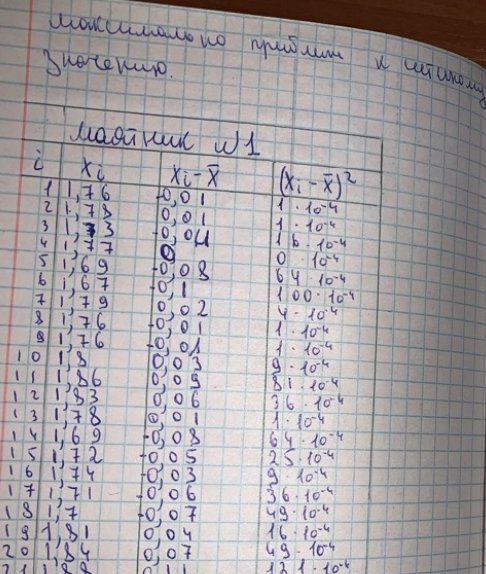 максимально приближ к истиному
значению.
маятник №1
i xi xi - x̄ (xi - x̄)²
1 1,76 -0,01 1·10⁻⁴
2 1,78 0,01 1·10⁻⁴
3 1,73 -0,04 16·10⁻⁴
4 1,77 0 0·10⁻⁴
5 1,69 -0,08 64·10⁻⁴
6 1,67 -0,1 100·10⁻⁴
7 1,79 0,02 4·10⁻⁴
8 1,76 -0,01 1·10⁻⁴
9 1,76 -0,01 1·10⁻⁴
10 1,8 0,03 9·10⁻⁴
11 1,86 0,09 81·10⁻⁴
12 1,83 0,06 36·10⁻⁴
13 1,78 0,01 1·10⁻⁴
14 1,69 -0,08 64·10⁻⁴
15 1,72 -0,05 25·10⁻⁴
16 1,74 -0,03 9·10⁻⁴
17 1,71 -0,06 36·10⁻⁴
18 1,7 -0,07 49·10⁻⁴
19 1,81 0,04 16·10⁻⁴
20 1,84 0,07 49·10⁻⁴
21 1,88 0,11 121·10⁻⁴